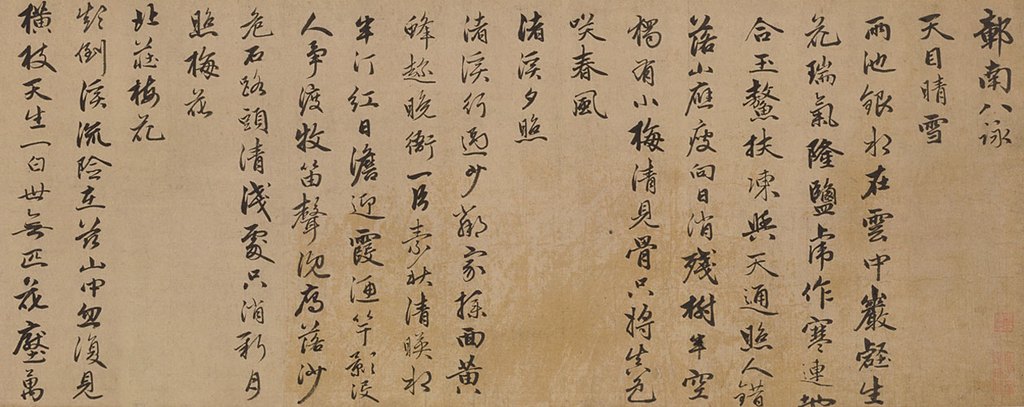 鄣南八詠
天目晴雪
兩池銀水在雲中巖壑生
花瑞氣隆鹽虎作寒連地
合玉鰲扶凍與天通照人錯
落山應瘦向日消殘樹半空
獨有小梅清見骨只將生色
咲春風
渚溪夕照
渚溪行過少鄰家撲面黃
蜂趁晚衙一片素秋清暎水
半汀紅日澹迎霞酒竿影沒
人爭渡牧笛聲沉雁落沙
危石路頭清淺處只消新月
照梅花
北莊梅花
倒溪流險在茲山中忽復見
橫枝天生一白世無匹花壓萬